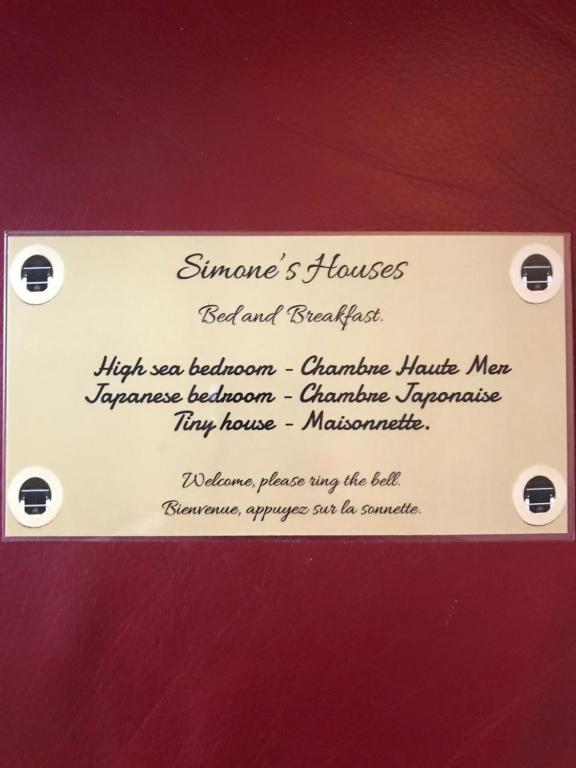 Simone's Houses
Bed and Breakfast.
High sea bedroom - Chambre Haute Mer
Japanese bedroom - Chambre Japonaise
Tiny house - Maisonnette.
Welcome, please ring the bell.
Bienvenue, appuyez sur la sonnette.